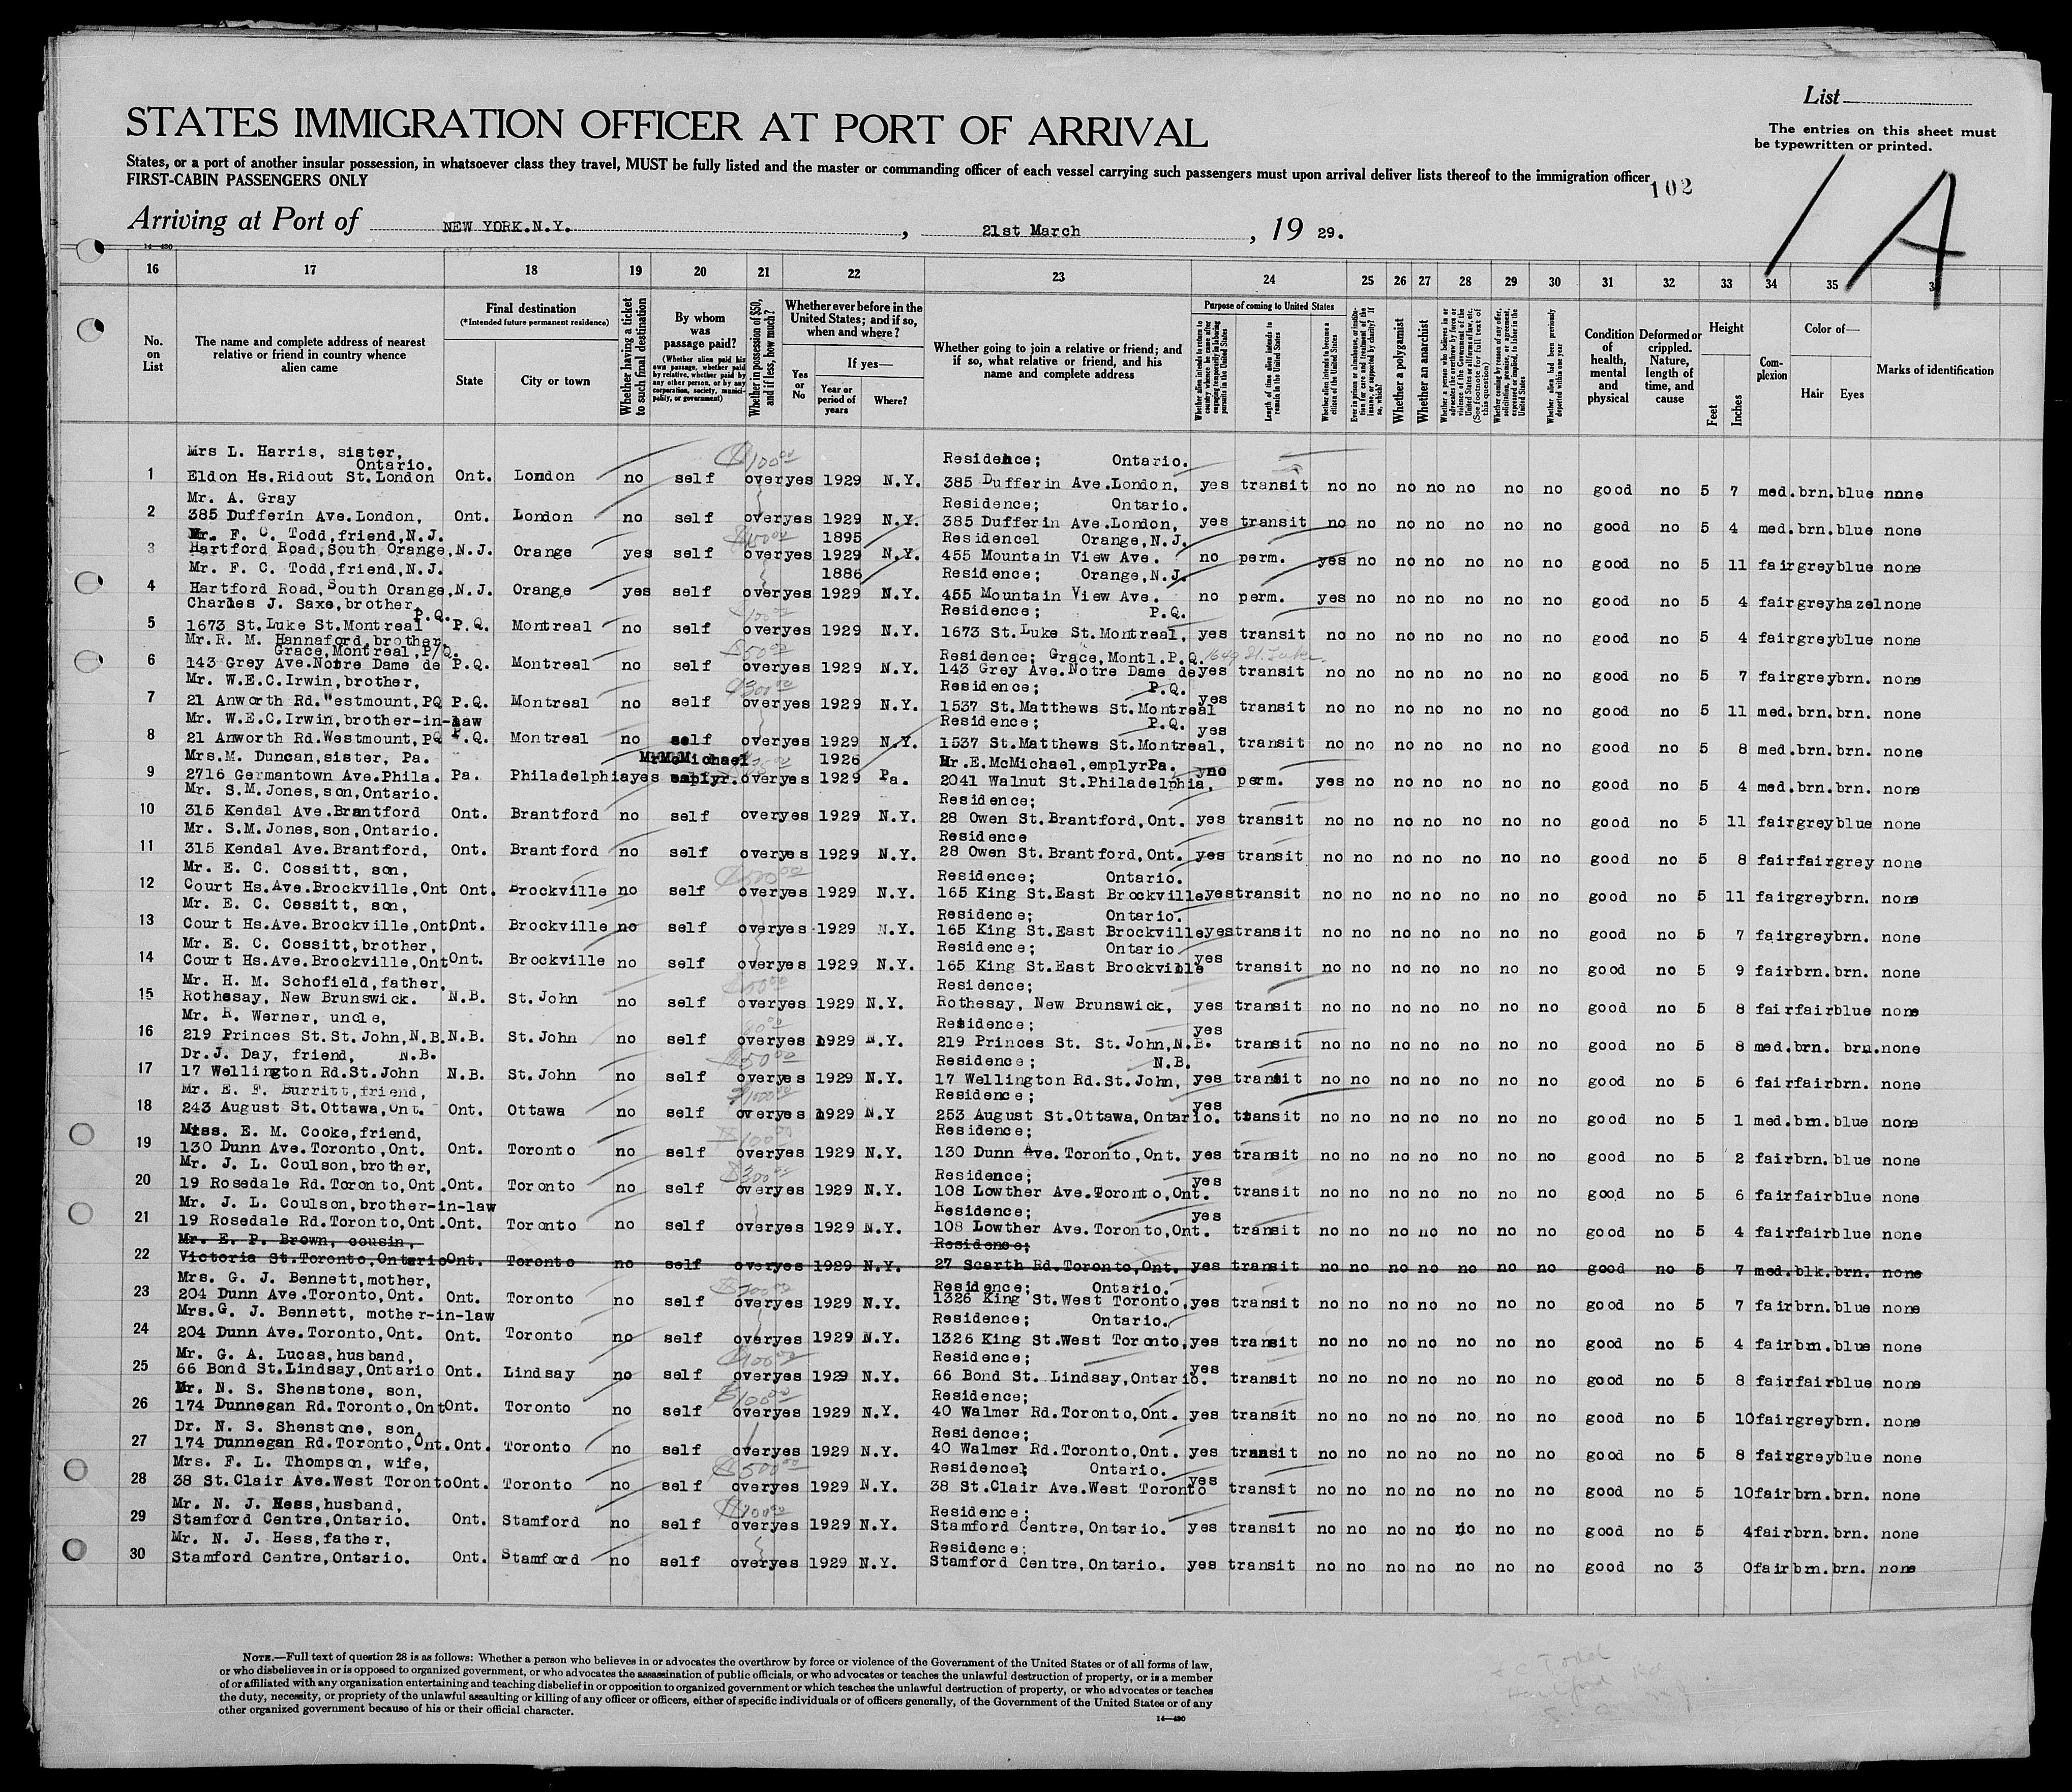 List
The entries on this sheet must
be typewritten or printed.
STATES IMMIGRATION OFFICER AT PORT OF ARRIVAL
States, or a port of another insular possession, in whatsoever class they travel, MUST be fully listed and the master or commanding officer of each vessel carrying such passengers must upon arrival deliver lists thereof to the immigration officer
FIRST-CABIN PASSENGERS ONLY
102
1 A
Arriving at Port of NEW YORK.N.Y. , 21st March , 19 29.
14-430
16 17 18 19 20 21 22 23 24 25 26 27 28 29 30 31 32 33 34 35
No. on List
The name and complete address of nearest relative or friend in country whence alien came
Final destination
(*Intended future permanent residence)
State
City or town
Whether having a ticket to such final destination
By whom was passage paid?
(Whether alien paid his own passage, whether paid by relative, whether paid by any other person, or by any corporation, society, municipality, or government)
Whether in possession of $50, and if less, how much?
Whether ever before in the United States; and if so, when and where?
Yes or No
If yes—
Year or period of years
Where?
Whether going to join a relative or friend; and if so, what relative or friend, and his name and complete address
Purpose of coming to United States
Whether alien intends to return to country whence he came after engaging temporarily in laboring pursuits in the United States
Length of time alien intends to remain in the United States
Whether alien intends to become a citizen of the United States
Ever in prison or almshouse, or institution for care and treatment of the insane, or supported by charity? If so, which?
Whether a polygamist
Whether an anarchist
Whether a person who believes in or advocates the overthrow by force or violence of the Government of the United States or all forms of law, etc. (See footnote for full text of this question)
Whether coming by reason of any offer, solicitation, promise, or agreement, expressed or implied, to labor in the United States
Whether alien had been previously deported within one year
Condition of health, mental and physical
Deformed or crippled. Nature, length of time, and cause
Height
Feet
Inches
Complexion
Color of—
Hair
Eyes
Marks of identification
Mrs L. Harris, sister, Ontario. Residence; Ontario.
1 Eldon Hs.Ridout St.London Ont. London no self $100.00 over yes 1929 N.Y. 385 Dufferin Ave.London, yes transit no no no no no no no good no 5 7 med. brn. blue none
Mr. A. Gray Residence; Ontario.
2 385 Dufferin Ave.London, Ont. London no self over yes 1929 N.Y. 385 Dufferin Ave.London, yes transit no no no no no no no good no 5 4 med. brn. blue none
Mr. F. C. Todd,friend,N.J. 1895 Residencel Orange,N.J.
3 Hartford Road,South Orange, N.J. Orange yes self over yes 1929 N.Y. 455 Mountain View Ave. no perm. yes no no no no no no good no 5 11 fair grey blue none
Mr. F. C. Todd,friend,N.J. 1886 Residence; Orange,N.J.
4 Hartford Road,South Orange, N.J. Orange yes self over yes 1929 N.Y. 455 Mountain View Ave. no perm. yes no no no no no no good no 5 4 fair grey hazel none
Charles J. Saxe,brother, P.Q. Residence; P.Q.
5 1673 St.Luke St.Montreal P.Q. Montreal no self over yes 1929 N.Y. 1673 St.Luke St.Montreal, yes transit no no no no no no no good no 5 4 fair grey blue none
Mr.R. M. Hannaford,brother, Grace,Montreal,P/Q. Residence; Grace,Montl.P.Q. 1649 St. Luke.
6 143 Grey Ave.Notre Dame de P.Q. Montreal no self $50.00 over yes 1929 N.Y. 143 Grey Ave.Notre Dame de yes transit no no no no no no no good no 5 7 fair grey brn. none
Mr. W.E.C.Irwin,brother, Residence; P.Q.
7 21 Anworth Rd.Westmount,PQ P.Q. Montreal no self $300.00 over yes 1929 N.Y. 1537 St.Matthews St.Montreal yes transit no no no no no no no good no 5 11 med. brn. brn. none
Mr. W.E.C.Irwin,brother-in-law Residence; P.Q.
8 21 Anworth Rd.Westmount,PQ P.Q. Montreal no self over yes 1929 N.Y. 1537 St.Matthews St.Montreal, yes transit no no no no no no no good no 5 8 med. brn. brn. none
Mrs.M. Duncan,sister, Pa. Mr.McMichael 1926 Mr.E.McMichael,emplyrPa.
9 2716 Germantown Ave.Phila. Pa. Philadelphia yes emplyr. over yes 1929 Pa. 2041 Walnut St.Philadelphia, no perm. yes no no no no no no good no 5 4 med. brn. brn. none
Mr. S.M.Jones,son,Ontario. Residence;
10 315 Kendal Ave.Brantford Ont. Brantford no self over yes 1929 N.Y. 28 Owen St.Brantford,Ont. yes transit no no no no no no no good no 5 11 fair grey blue none
Mr. S.M.Jones,son,Ontario. Residence
11 315 Kendal Ave.Brantford, Ont. Brantford no self over yes 1929 N.Y. 28 Owen St.Brantford,Ont. yes transit no no no no no no no good no 5 8 fair fair grey none
Mr. E. C. Cossitt, son, Residence; Ontario.
12 Court Hs.Ave.Brockville,Ont Ont. Brockville no self $500.00 over yes 1929 N.Y. 165 King St.East Brockville yes transit no no no no no no no good no 5 11 fair grey brn. none
Mr. E. C. Cessitt, son, Residence; Ontario.
13 Court Hs.Ave.Brockville,Ont. Ont. Brockville no self over yes 1929 N.Y. 165 King St.East Brockville yes transit no no no no no no no good no 5 7 fair grey brn. none
Mr. E. C. Cossitt,brother, Residence; Ontario
14 Court Hs.Ave.Brockville,Ont Ont. Brockville no self over yes 1929 N.Y. 165 King St.East Brockville yes transit no no no no no no no good no 5 9 fair brn. brn. none
Mr. H. M. Schofield,father, Residence;
15 Rothesay, New Brunswick. N.B. St.John no self over yes 1929 N.Y. Rothesay, New Brunswick, yes transit no no no no no no no good no 5 8 fair fair blue none
Mr. R. Werner, uncle, Residence;
16 219 Princes St.St.John,N.B. N.B. St.John no self over yes 1929 N.Y. 219 Princes St. St.John,N.B. yes transit no no no no no no no good no 5 8 med. brn. brn. none
Dr.J. Day, friend, N.B. Residence; N.B.
17 17 Wellington Rd.St.John N.B. St.John no self $50.00 over yes 1929 N.Y. 17 Wellington Rd.St.John, yes transit no no no no no no no good no 5 6 fair fair brn. none
Mr. E. F. Burritt,friend, Residence;
18 243 August St.Ottawa,Ont. Ont. Ottawa no self $1000.00 over yes 1929 N.Y 253 August St.Ottawa,Ontario. yes transit no no no no no no no good no 5 1 med. brn. blue none
Miss. E. M. Cooke,friend, Residence;
19 130 Dunn Ave.Toronto,Ont. Ont. Toronto no self $100.00 over yes 1929 N.Y. 130 Dunn Ave.Toronto,Ont. yes transit no no no no no no no good no 5 2 fair brn. blue none
Mr. J. L. Coulson,brother, Residence;
20 19 Rosedale Rd.Toronto,Ont. Ont. Toronto no self $300.00 over yes 1929 N.Y. 108 Lowther Ave.Toronto,Ont. yes transit no no no no no no no good no 5 6 fair fair blue none
Mr. J. L. Coulson,brother-in-law Residence;
21 19 Rosedale Rd.Toronto,Ont. Ont. Toronto no self over yes 1929 N.Y. 108 Lowther Ave.Toronto,Ont. yes transit no no no no no no no good no 5 4 fair fair blue none
Mr. E. P. Brown, cousin, Residence;
22 Victoria St.Toronto,Ontario Ont. Toronto no self over yes 1929 N.Y. 27 Scarth Rd.Toronto,Ont. yes transit no no no no no no no good no 5 7 med. blk. brn. none
Mrs. G. J. Bennett,mother, Residence; Ontario.
23 204 Dunn Ave.Toronto,Ont. Ont. Toronto no self over yes 1929 N.Y. 1326 King St.West Toronto, yes transit no no no no no no no good no 5 7 fair brn. blue none
Mrs.G. J. Bennett, mother-in-law Residence; Ontario.
24 204 Dunn Ave.Toronto,Ont. Ont. Toronto no self over yes 1929 N.Y. 1326 King St.West Toronto, yes transit no no no no no no no good no 5 4 fair brn. blue none
Mr. G. A. Lucas,husband, Residence;
25 66 Bond St.Lindsay,Ontario Ont. Lindsay no self $100.00 over yes 1929 N.Y. 66 Bond St. Lindsay,Ontario. yes transit no no no no no no no good no 5 8 fair fair blue none
Mr. N. S. Shenstone, son, Residence;
26 174 Dunnegan Rd.Toronto,Ont Ont. Toronto no self $100.00 over yes 1929 N.Y. 40 Walmer Rd.Toronto,Ont. yes transit no no no no no no no good no 5 10 fair grey brn. none
Dr. N. S. Shenstone, son, Residence;
27 174 Dunnegan Rd.Toronto,Ont. Ont. Toronto no self over yes 1929 N.Y. 40 Walmer Rd.Toronto,Ont. yes transit no no no no no no no good no 5 8 fair grey blue none
Mrs. F. L. Thompson, wife, Residence; Ontario.
28 38 St.Clair Ave.West Toronto Ont. Toronto no self $500.00 over yes 1929 N.Y. 38 St.Clair Ave.West Toronto yes transit no no no no no no no good no 5 10 fair brn. brn. none
Mr. N. J. Hess,husband, Residence;
29 Stamford Centre,Ontario. Ont. Stamford no self over yes 1929 N.Y. Stamford Centre,Ontario. yes transit no no no no no no no good no 5 4 fair brn. brn. none
Mr. N. J. Hess,father, Residence;
30 Stamford Centre,Ontario. Ont. Stamford no self over yes 1929 N.Y. Stamford Centre,Ontario. yes transit no no no no no no no good no 3 0 fair brn. brn. none
NOTE.—Full text of question 28 is as follows: Whether a person who believes in or advocates the overthrow by force or violence of the Government of the United States or of all forms of law,
or who disbelieves in or is opposed to organized government, or who advocates the assassination of public officials, or who advocates or teaches the unlawful destruction of property, or is a member
of or affiliated with any organization entertaining and teaching disbelief in or opposition to organized government or which teaches the unlawful destruction of property, or who advocates or teaches
the duty, necessity, or propriety of the unlawful assaulting or killing of any officer or officers, either of specific individuals or of officers generally, of the Government of the United States or of any
other organized government because of his or their official character.
14-430